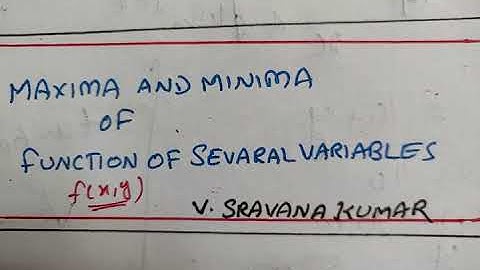 MAXIMA AND MINIMA
OF
FUNCTION OF SEVARAL VARIABLES
f(x,y)
V. SRAVANA KUMAR